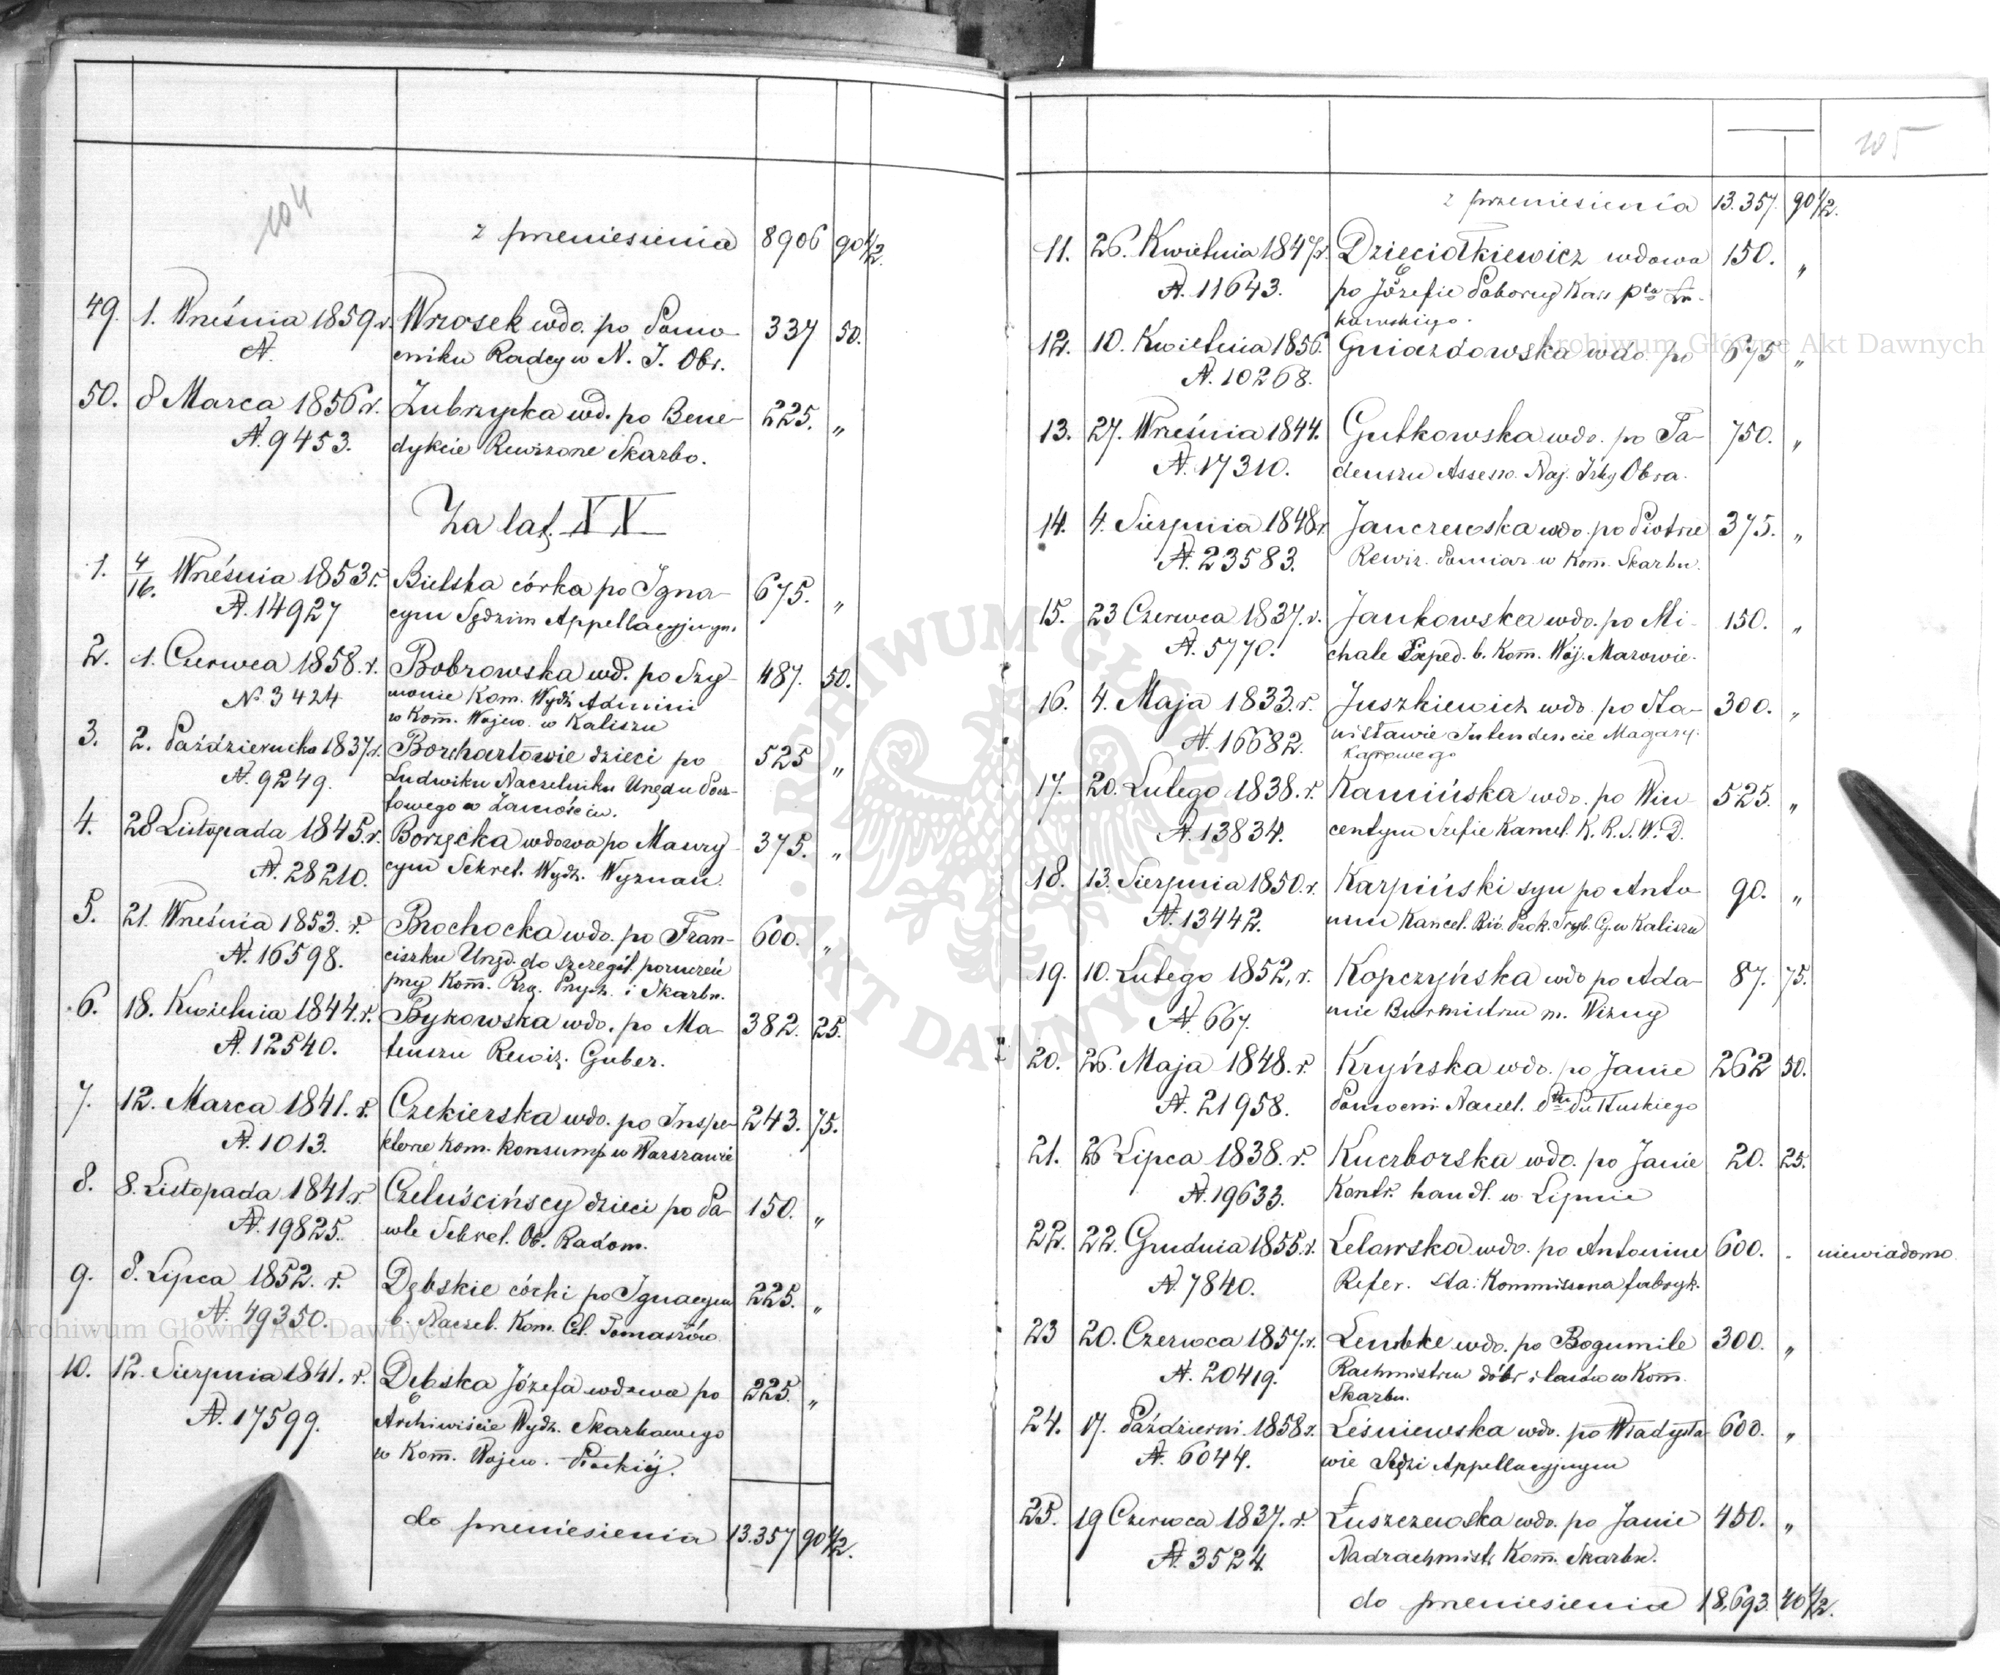 104
z przeniesienia 8906 90 1/2.
49. 1. Września 1859 r. Wrzosek wdo. po Pomo- 337 50.
N. cniku Radcy w N. I. Obr.
50. 8 Marca 1856 r. Zubrzycka wd. po Bene- 225. "
N. 9453. dykcie Rewizorze Skarbo.
Za lat XX
1. 4/16. Września 1853 r. Bielska córka po Igna- 675. "
N. 14927 cym Sędzim Appellacyjnym.
2. 1. Czerwca 1858. r. Bobrowska wd. po Szy- 487. 50.
N. 3424 monie Kom. Wydz. Admini
w Kom̄. Wojew. w Kaliszu
3. 2. Października 1837. r. Borchartowie dzieci po 525 "
N. 9249. Ludwiku Naczelniku Urzędu Pocz-
towego w Zamościu.
4. 28 Listopada 1845. r. Borzęcka wdowa po Maury- 375. "
N. 28210. cym Sekret. Wydz. Wyznań.
5. 21. Września 1853. r. Brochocka wdo. po Fran- 600. "
N. 16598. ciszku Urzęd. do szczegól. poruczeń
przy Kom̄. Rzą. Przych. i Skarbu.
6. 18. Kwietnia 1844. r. Bykowska wdo. po Ma- 382. 25.
N. 12540. teuszu Rewiz. Guber.
7. 12. Marca 1841. r. Czekierska wdo. po Inspe- 243. 75.
N. 1013. ktorze Kom. Konsump. w Warszawie
8. 8. Listopada 1841. r. Czeluścińscy dzieci po Pa- 150. "
N. 19825. wle Sekret. Ob. Radom.
9. 8. Lipca 1852. r. Dębskie córki po Ignacym 225. "
N. 49350. b. Naczel. Kom. Cel. Tomaszów.
10. 12. Sierpnia 1841. r. Dębska Józefa wdowa po 225. "
N. 17599. Archiwiście Wydz. Skarbowego
w Kom̄. Wojew. Płockiéj.
do przeniesienia 13.357 90 1/2.
105
z przeniesienia 13.357. 90 1/2.
11. 26. Kwietnia 1847. r. Dzięciołkiewicz wdowa 150. "
N. 11643. po Józefie Poborcy Kass pta Łu-
kowskiego.
12. 10. Kwietnia 1856. Gniazdowska wdo. po 675 "
N. 10268.
13. 27. Września 1844. Gutkowska wdo. po Ta- 750. "
N. 17310. deuszu Assesso. Naj. Izby Obra.
14. 4. Sierpnia 1848 r. Janczewska wdo. po Piotrze 375. "
N. 23583. Rewiz. Pomiar. w Kom̄. Skarbu.
15. 23 Czerwca 1837. r. Jankowska wdo. po Mi- 150. "
N. 5770. chale Exped. b. Kom̄. Woj. Mazowie.
16. 4. Maja 1833. r. Juszkiewicz wdo. po Sta- 300. "
N. 16682. nisławie Intendencie Magazy-
nowego
17. 20. Lutego 1838. r. Kamińska wdo. po Win- 525. "
N. 13834. centym Szefie Kancel. K. R. S. W. D.
18. 13. Sierpnia 1850. r. Karpiński syn po Anto- 90. "
N. 13442. nim Kancel. Bió. Prok. Tryb. Cy. w Kaliszu
19. 10. Lutego 1852. r. Kopczyńska wdo po Ada- 87. 75.
N. 667. mie Burmistrzu m. Wizny
20. 26. Maja 1848. r. Kryńska wdo. po Janie 262 50.
N. 21958. Pomocni. Naczel. Ptu Pułtuskiego
21. 26 Lipca 1838. r. Kuczborska wdo. po Janie 20. 25.
N. 19633. Kontr. handl. w Lipnie
22. 22. Grudnia 1855. r. Lelawska wdo. po Antonim 600. " niewiadomo.
N. 7840. Refer. sta: Kommissarza fabryk.
23 20. Czerwca 1857. r. Lembke wdo. po Bogumile 300. "
N. 20419. Rachmistrzu dóbr i lasów w Kom̄.
Skarbu.
24. 17. Październi. 1858 r. Leśniewska wdo. po Władysła- 600. "
N. 6044. wie Sędzi Appellacyjnym
25. 19 Czerwca 1837. r. Łuszczewska wdo. po Janie 450. "
N. 3524. Nadrachmist. Kom̄. Skarbu.
do przeniesienia 18,693. 40 1/2.
Archiwum Główne Akt Dawnych
Archiwum Główne Akt Dawnych
ARCHIWUM GŁÓWNE AKT DAWNYCH